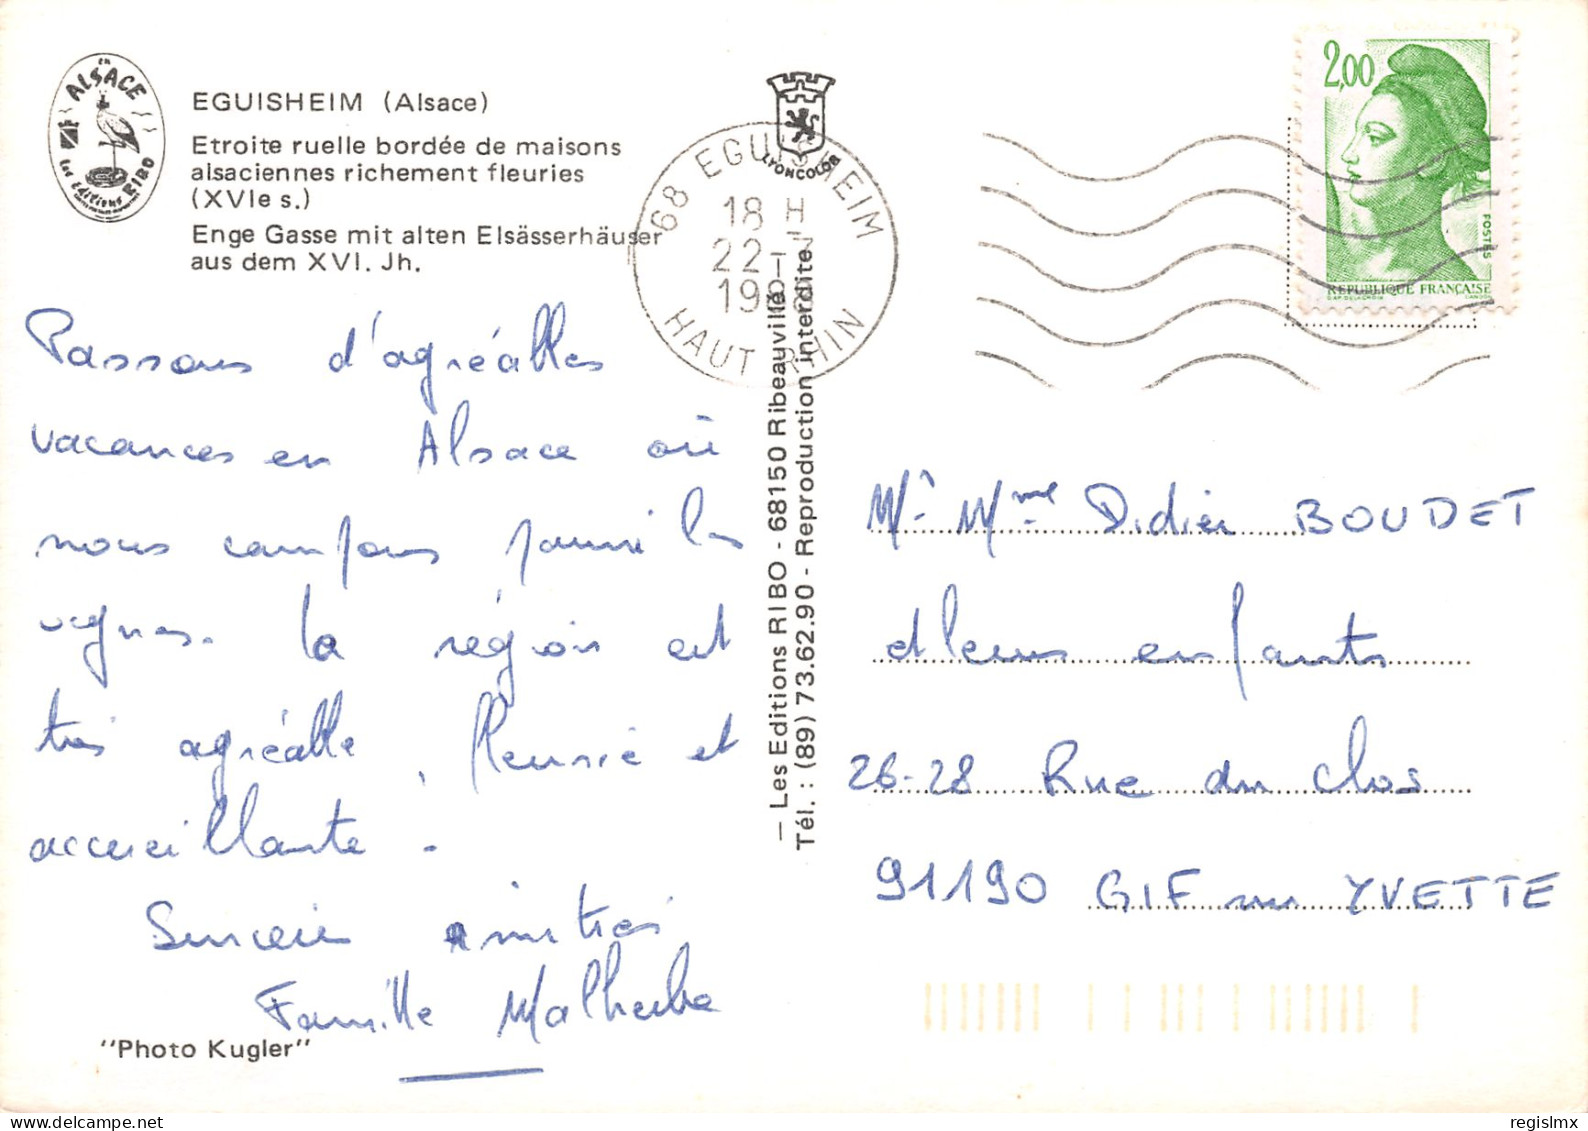 en
ALSACE
Les éditions RIBO
EGUISHEIM (Alsace)
Etroite ruelle bordée de maisons
alsaciennes richement fleuries
(XVIe s.)
Enge Gasse mit alten Elsässerhäuser
aus dem XVI. Jh.
LYONCOLOR
68 EGUISHEIM
18 H
22-7
19
HAUT RHIN
2,00
POSTES
REPUBLIQUE FRANÇAISE
D'AP. DELACROIX GANDON
Passons d'agréables
vacances en Alsace où
nous campons parmi les
vignes. La région est
très agréable, fleurie et
accueillante.
Sincères amitiés
Famille Malherbe
"Photo Kugler"
— Les Editions RIBO - 68150 Ribeauvillé
Tél. : (89) 73.62.90 - Reproduction interdite
Mr Mme Didier BOUDET
et leurs enfants
26-28 Rue du Clos
91190 GIF sur YVETTE
regislmx